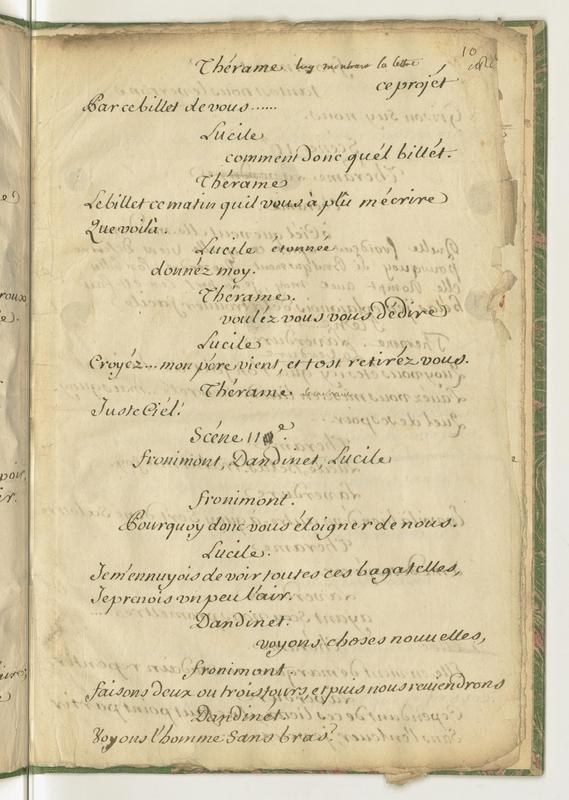 10
Thérame luy montrant la lettre
ce projét
Par ce billet de vous ......
Lucile
comment donc quél billét.
Thérame
Le billet ce matin quil vous à plû mécrire
Que voila.
Lucile étonnée
donnéz moy.
Thérame.
vouléz vous vous dédire
Lucile
Croyéz... mon pére vient, et tost retiréz vous.
Thérame
Juste Ciél!
Scéne 11e.
fronimont, Dandinet, Lucile
fronimont.
Pourquoy donc vous éloigner de nous.
Lucile.
Je m'ennuyois de voir toutes ces bagatelles,
Je prenois vn peu l'air.
Dandinet.
voyons choses nouuelles,
fronimont.
faisons deux ou trois tours et puis nous reuiendrons
Dandinet.
Voyons l'homme sans bras?